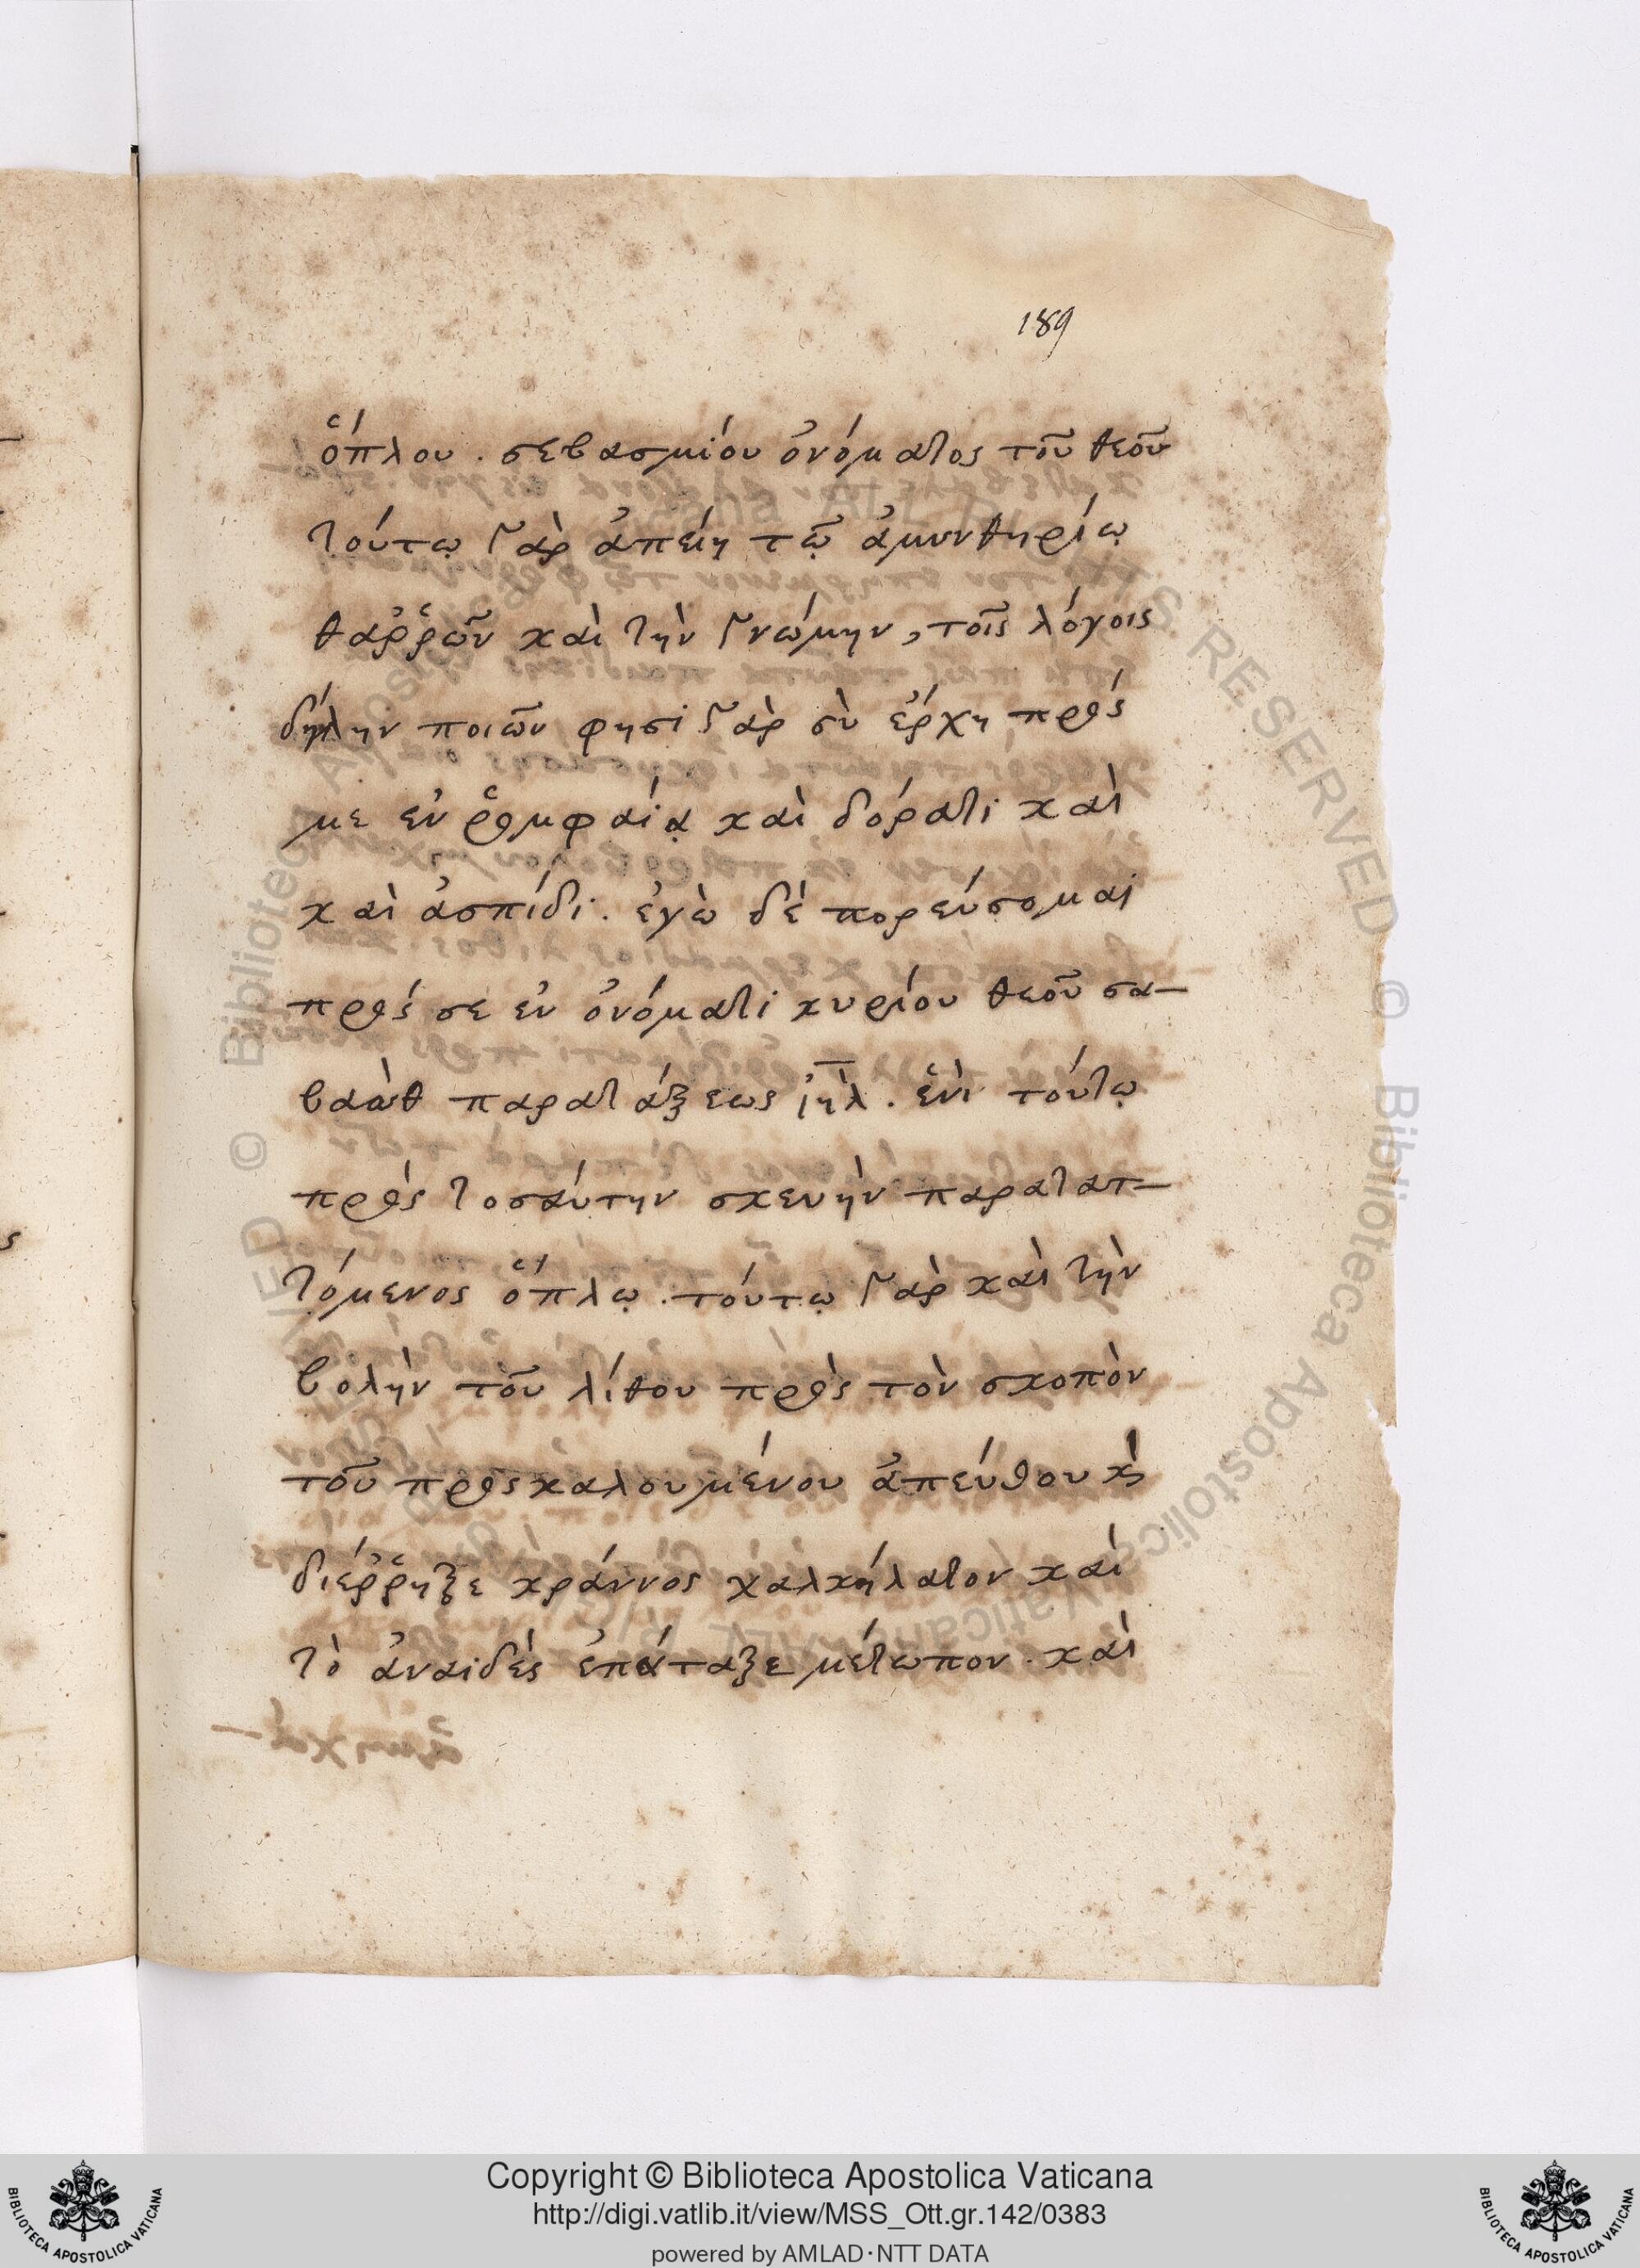 189
ὅπλου . σεβασμίου ὀνόματος τοῦ θεοῦ
τούτω γὰρ ἀπείη τῷ ἀμυντηρίῳ
θαῤῥῶν καὶ τὴν γνώμην, τοῖς λόγοις
δήλην ποιῶν φησὶ γὰρ σὺ ἔρχη πρός
με ἐν ῥομφαίᾳ καὶ δόρατι καὶ
καὶ ἀσπίδι . ἐγὼ δὲ πορεύσομαι
πρός σε ἐν ὀνόματι κυρίου θεοῦ σα–
βαὼθ παρατάξεως ἰηλ . ἑνὶ τούτῳ
πρὸς τοσαύτην σκευὴν παρατατ–
τόμενος ὅπλῳ . τούτῳ γὰρ καὶ τὴν
βολὴν τοῦ λίθου πρὸς τὸν σκοπὸν
τοῦ προσκαλουμένου ἀπεύθου κ̀
διέῤῥηξε κράννος χαλκήλατον καὶ
τὸ ἀναιδὲς ἐπάταξε μέτωπον . καὶ
© Biblioteca Apostolica Vaticana ALL RIGHTS RESERVED
Copyright © Biblioteca Apostolica Vaticana
http://digi.vatlib.it/view/MSS_Ott.gr.142/0383
powered by AMLAD·NTT DATA
BIBLIOTECA APOSTOLICA VATICANA
BIBLIOTECA APOSTOLICA VATICANA